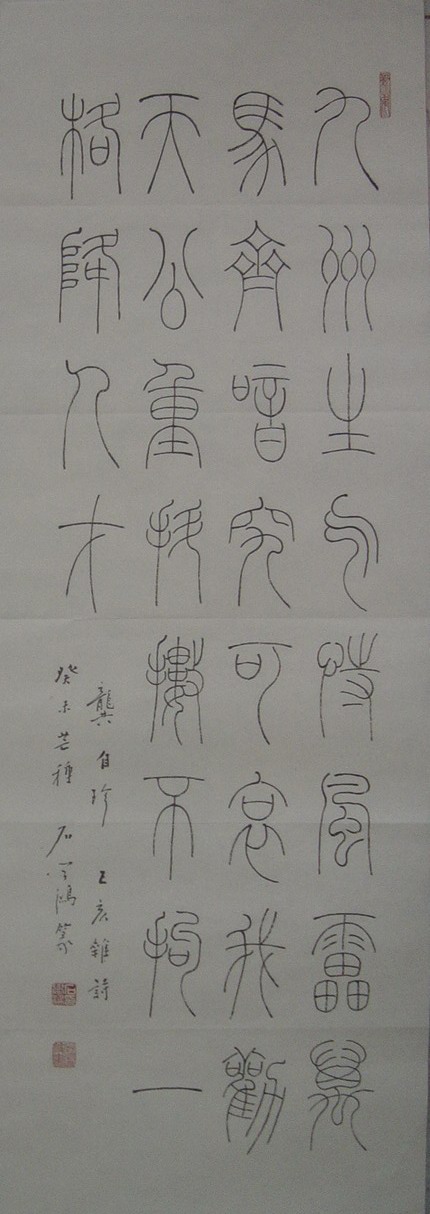 九州生气恃風雷萬
馬齊喑究可哀我勸
天公重抖擻不拘一
格降人才
龔自珍 己亥雜詩
癸未芒種 石 鴻篆